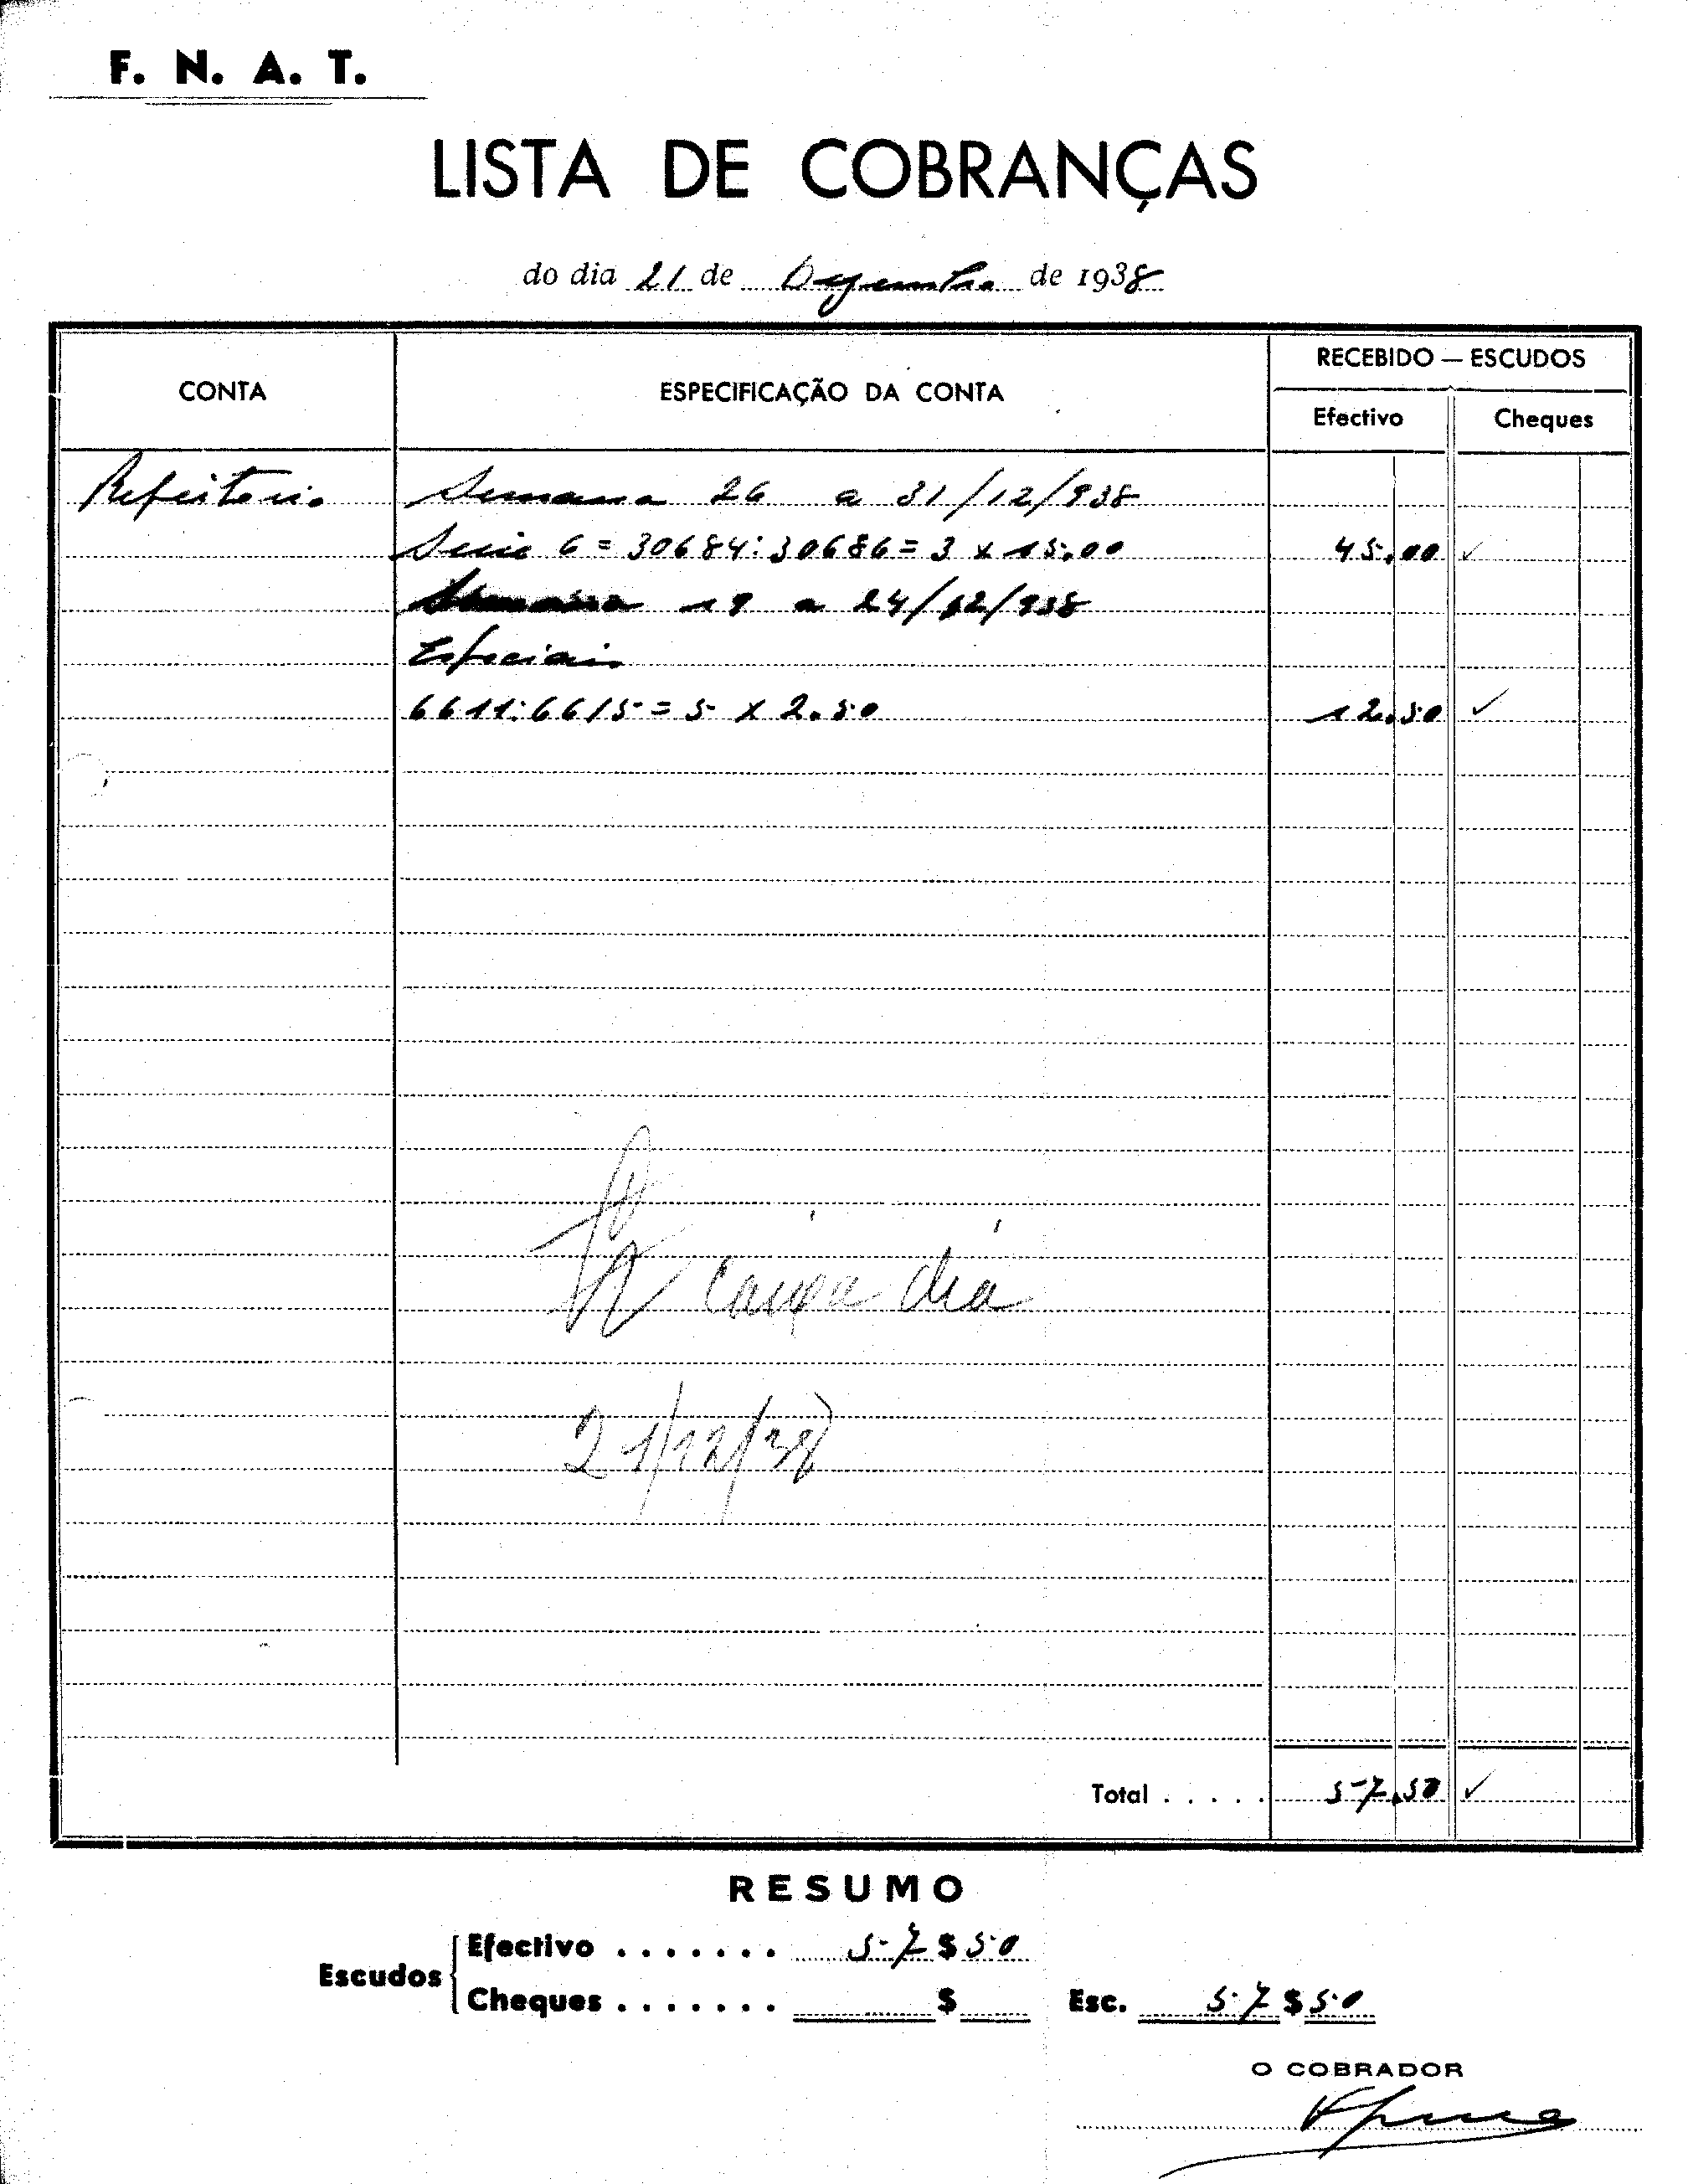 F. N. A. T.
LISTA DE COBRANÇAS
do dia 21 de Dezembro de 1938
CONTA
ESPECIFICAÇÃO DA CONTA
RECEBIDO — ESCUDOS
Efectivo
Cheques
Refeitorio Semana 26 a 31/12/938
Serie 6 = 30684:30686 = 3 x 15,00 45,00 ✓
Semana 19 a 24/12/938
Especiais
6611:6615 = 5 x 2.50 12,50 ✓
Caixa dia
21/12/38
Total . . . . . 57,50 ✓
RESUMO
Escudos
Efectivo . . . . . . . 57$50
Cheques . . . . . . . $
Esc. 57$50
O COBRADOR